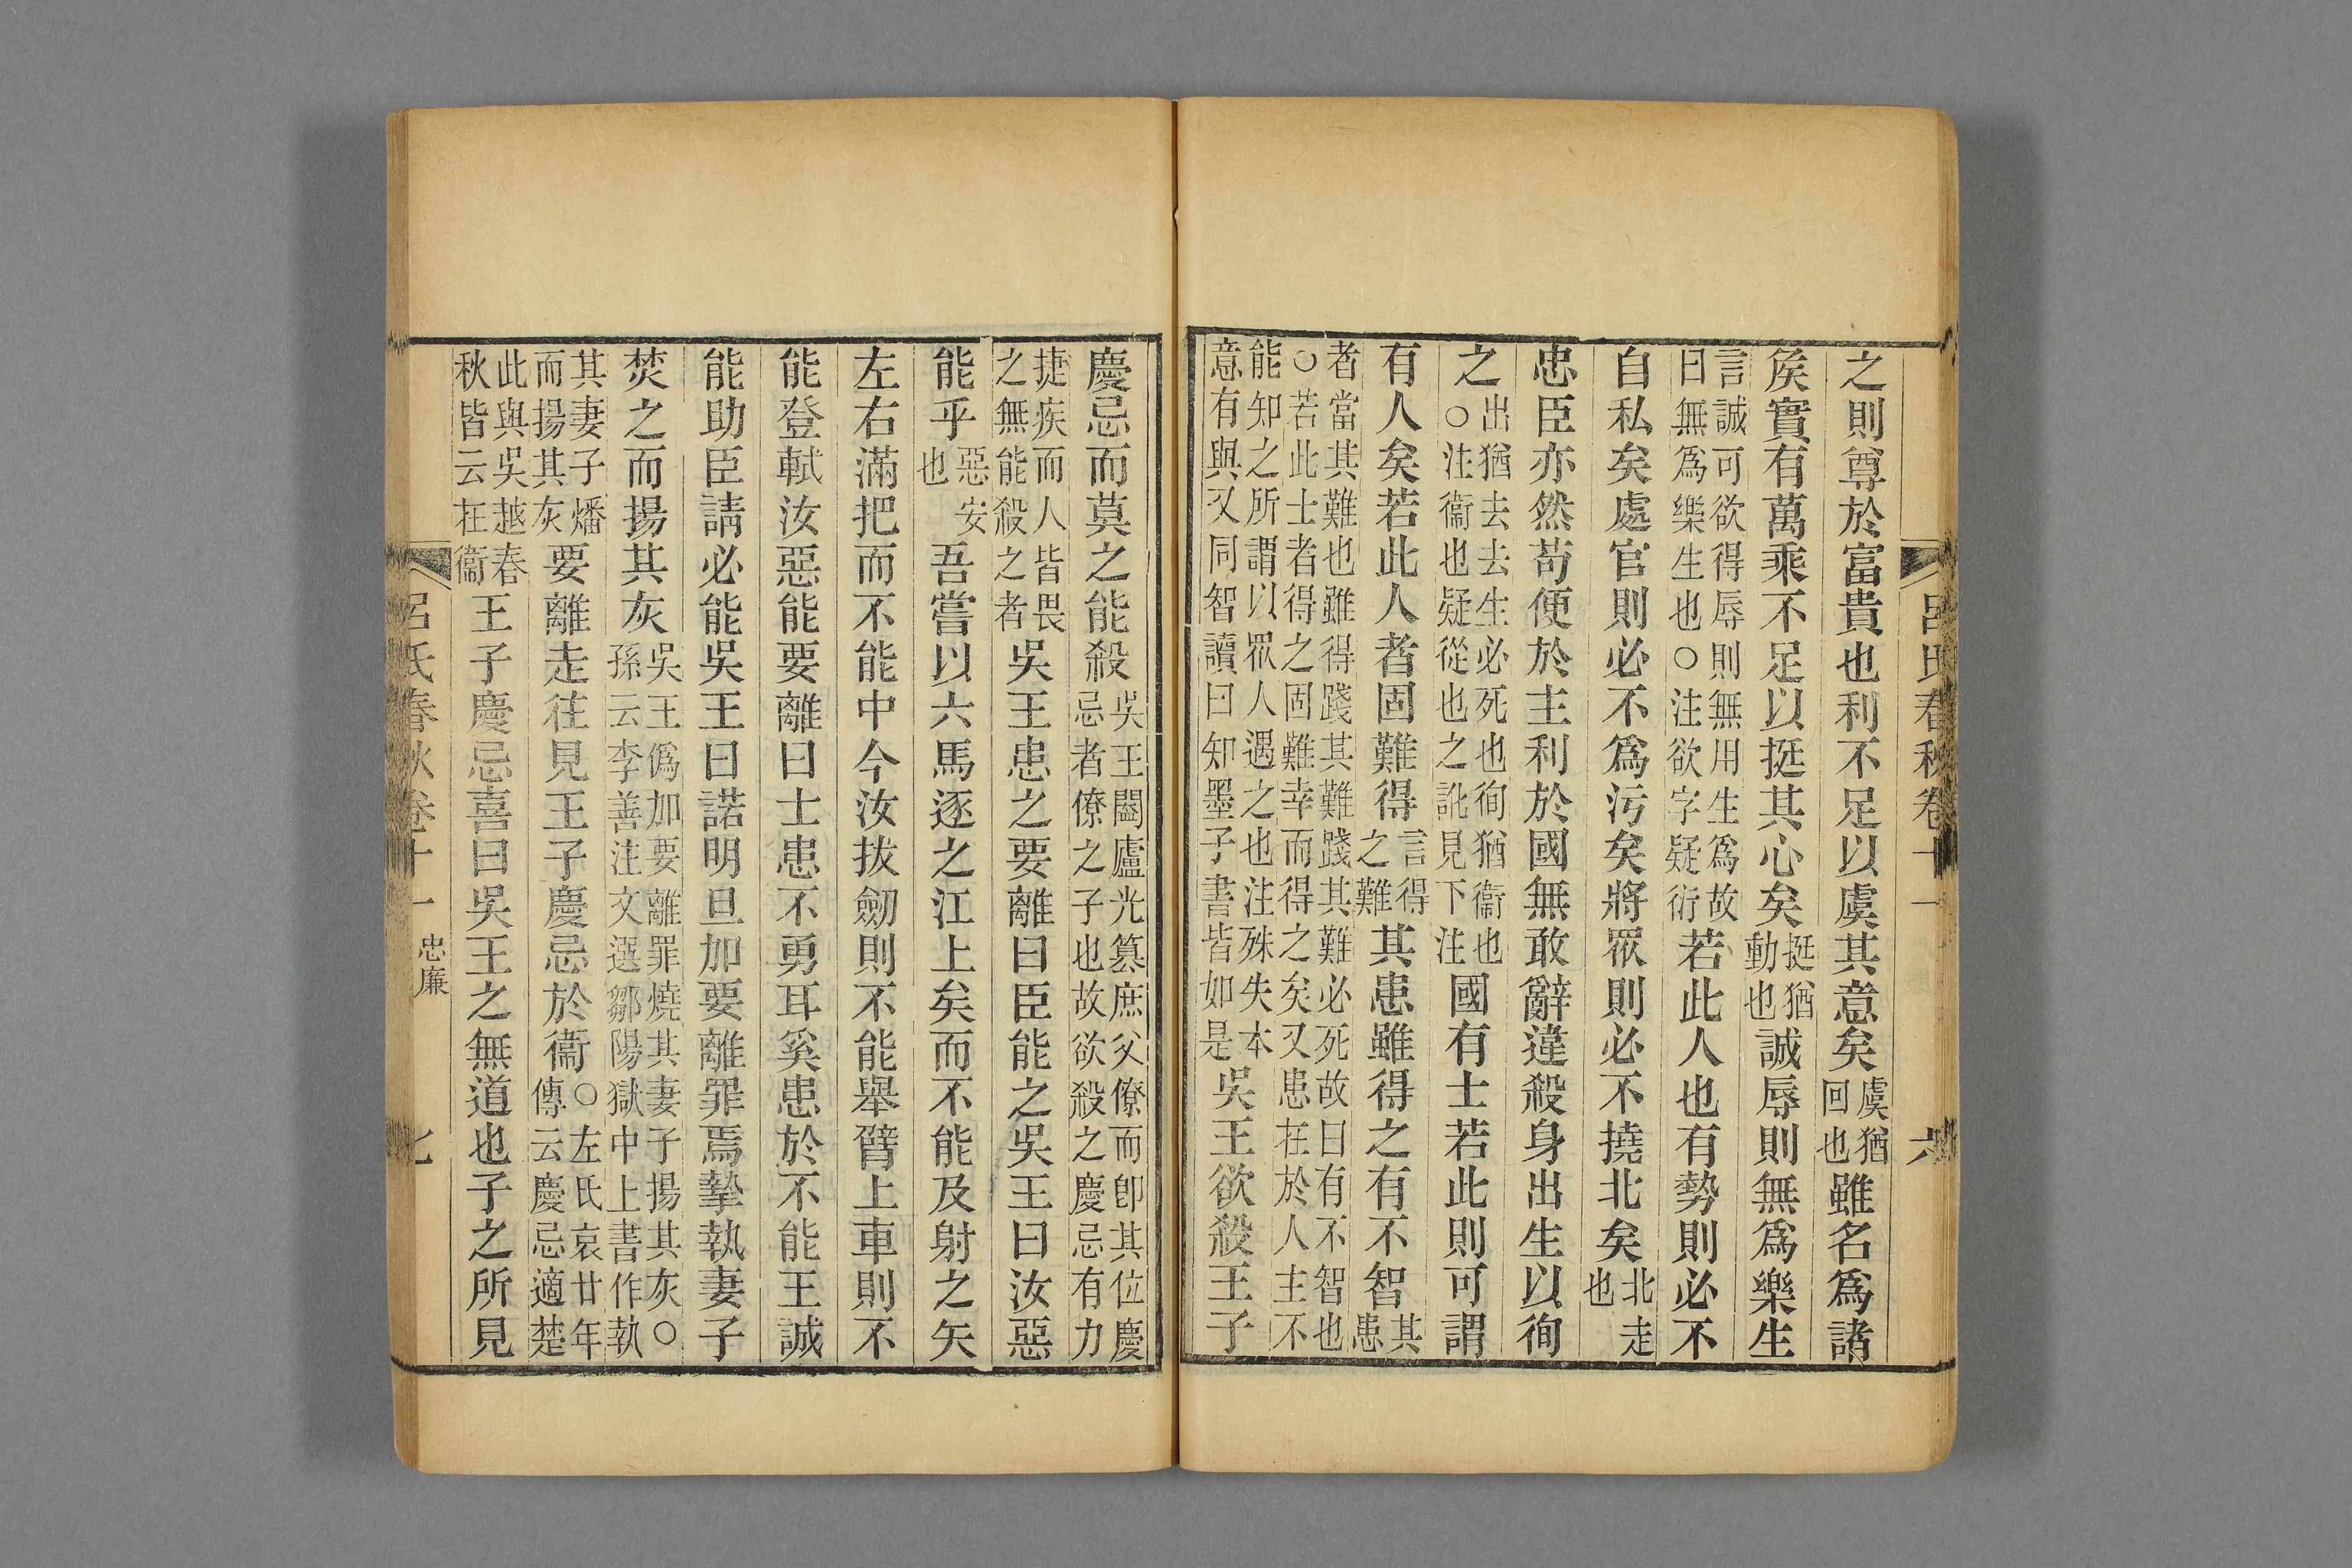 呂氏春秋卷十一 六
之則尊於富貴也利不足以虞其意矣虞猶回也雖名爲諸
侯實有萬乘不足以挺其心矣挺猶動也誠辱則無爲樂生
言誠可欲得辱則無用生爲故曰無爲樂生也○注欲字疑衍若此人也有勢則必不
自私矣處官則必不爲污矣將眾則必不撓北矣北走也
忠臣亦然苟便於主利於國無敢辭違殺身出生以徇
之出猶去去生必死也徇猶衞也○注衞也疑從也之訛見下注國有士若此則可謂
有人矣若此人者固難得言得之難其患雖得之有不智其患
者當其難也雖得踐其難踐其難必死故曰有不智也○若此士者得之固難幸而得之矣又患在於人主不
能知之所謂以眾人遇之也注殊失本意有與又同智讀曰知墨子書皆如是吳王欲殺王子
慶忌而莫之能殺吳王闔廬光篡庶父僚而卽其位慶忌者僚之子也故欲殺之慶忌有力
捷疾而人皆畏之無能殺之者吳王患之要離曰臣能之吳王曰汝惡
能乎惡安也吾嘗以六馬逐之江上矣而不能及射之矢
左右滿把而不能中今汝拔劒則不能舉臂上車則不
能登軾汝惡能要離曰士患不勇耳奚患於不能王誠
能助臣請必能吳王曰諾明旦加要離罪焉摯執妻子
焚之而揚其灰吳王僞加要離罪燒其妻子揚其灰○孫云李善注文選鄒陽獄中上書作執
其妻子燔而揚其灰要離走往見王子慶忌於衞○左氏哀廿年傳云慶忌適楚
此與吳越春秋皆云在衞王子慶忌喜曰吳王之無道也子之所見
呂氏春秋卷十一 忠廉 七